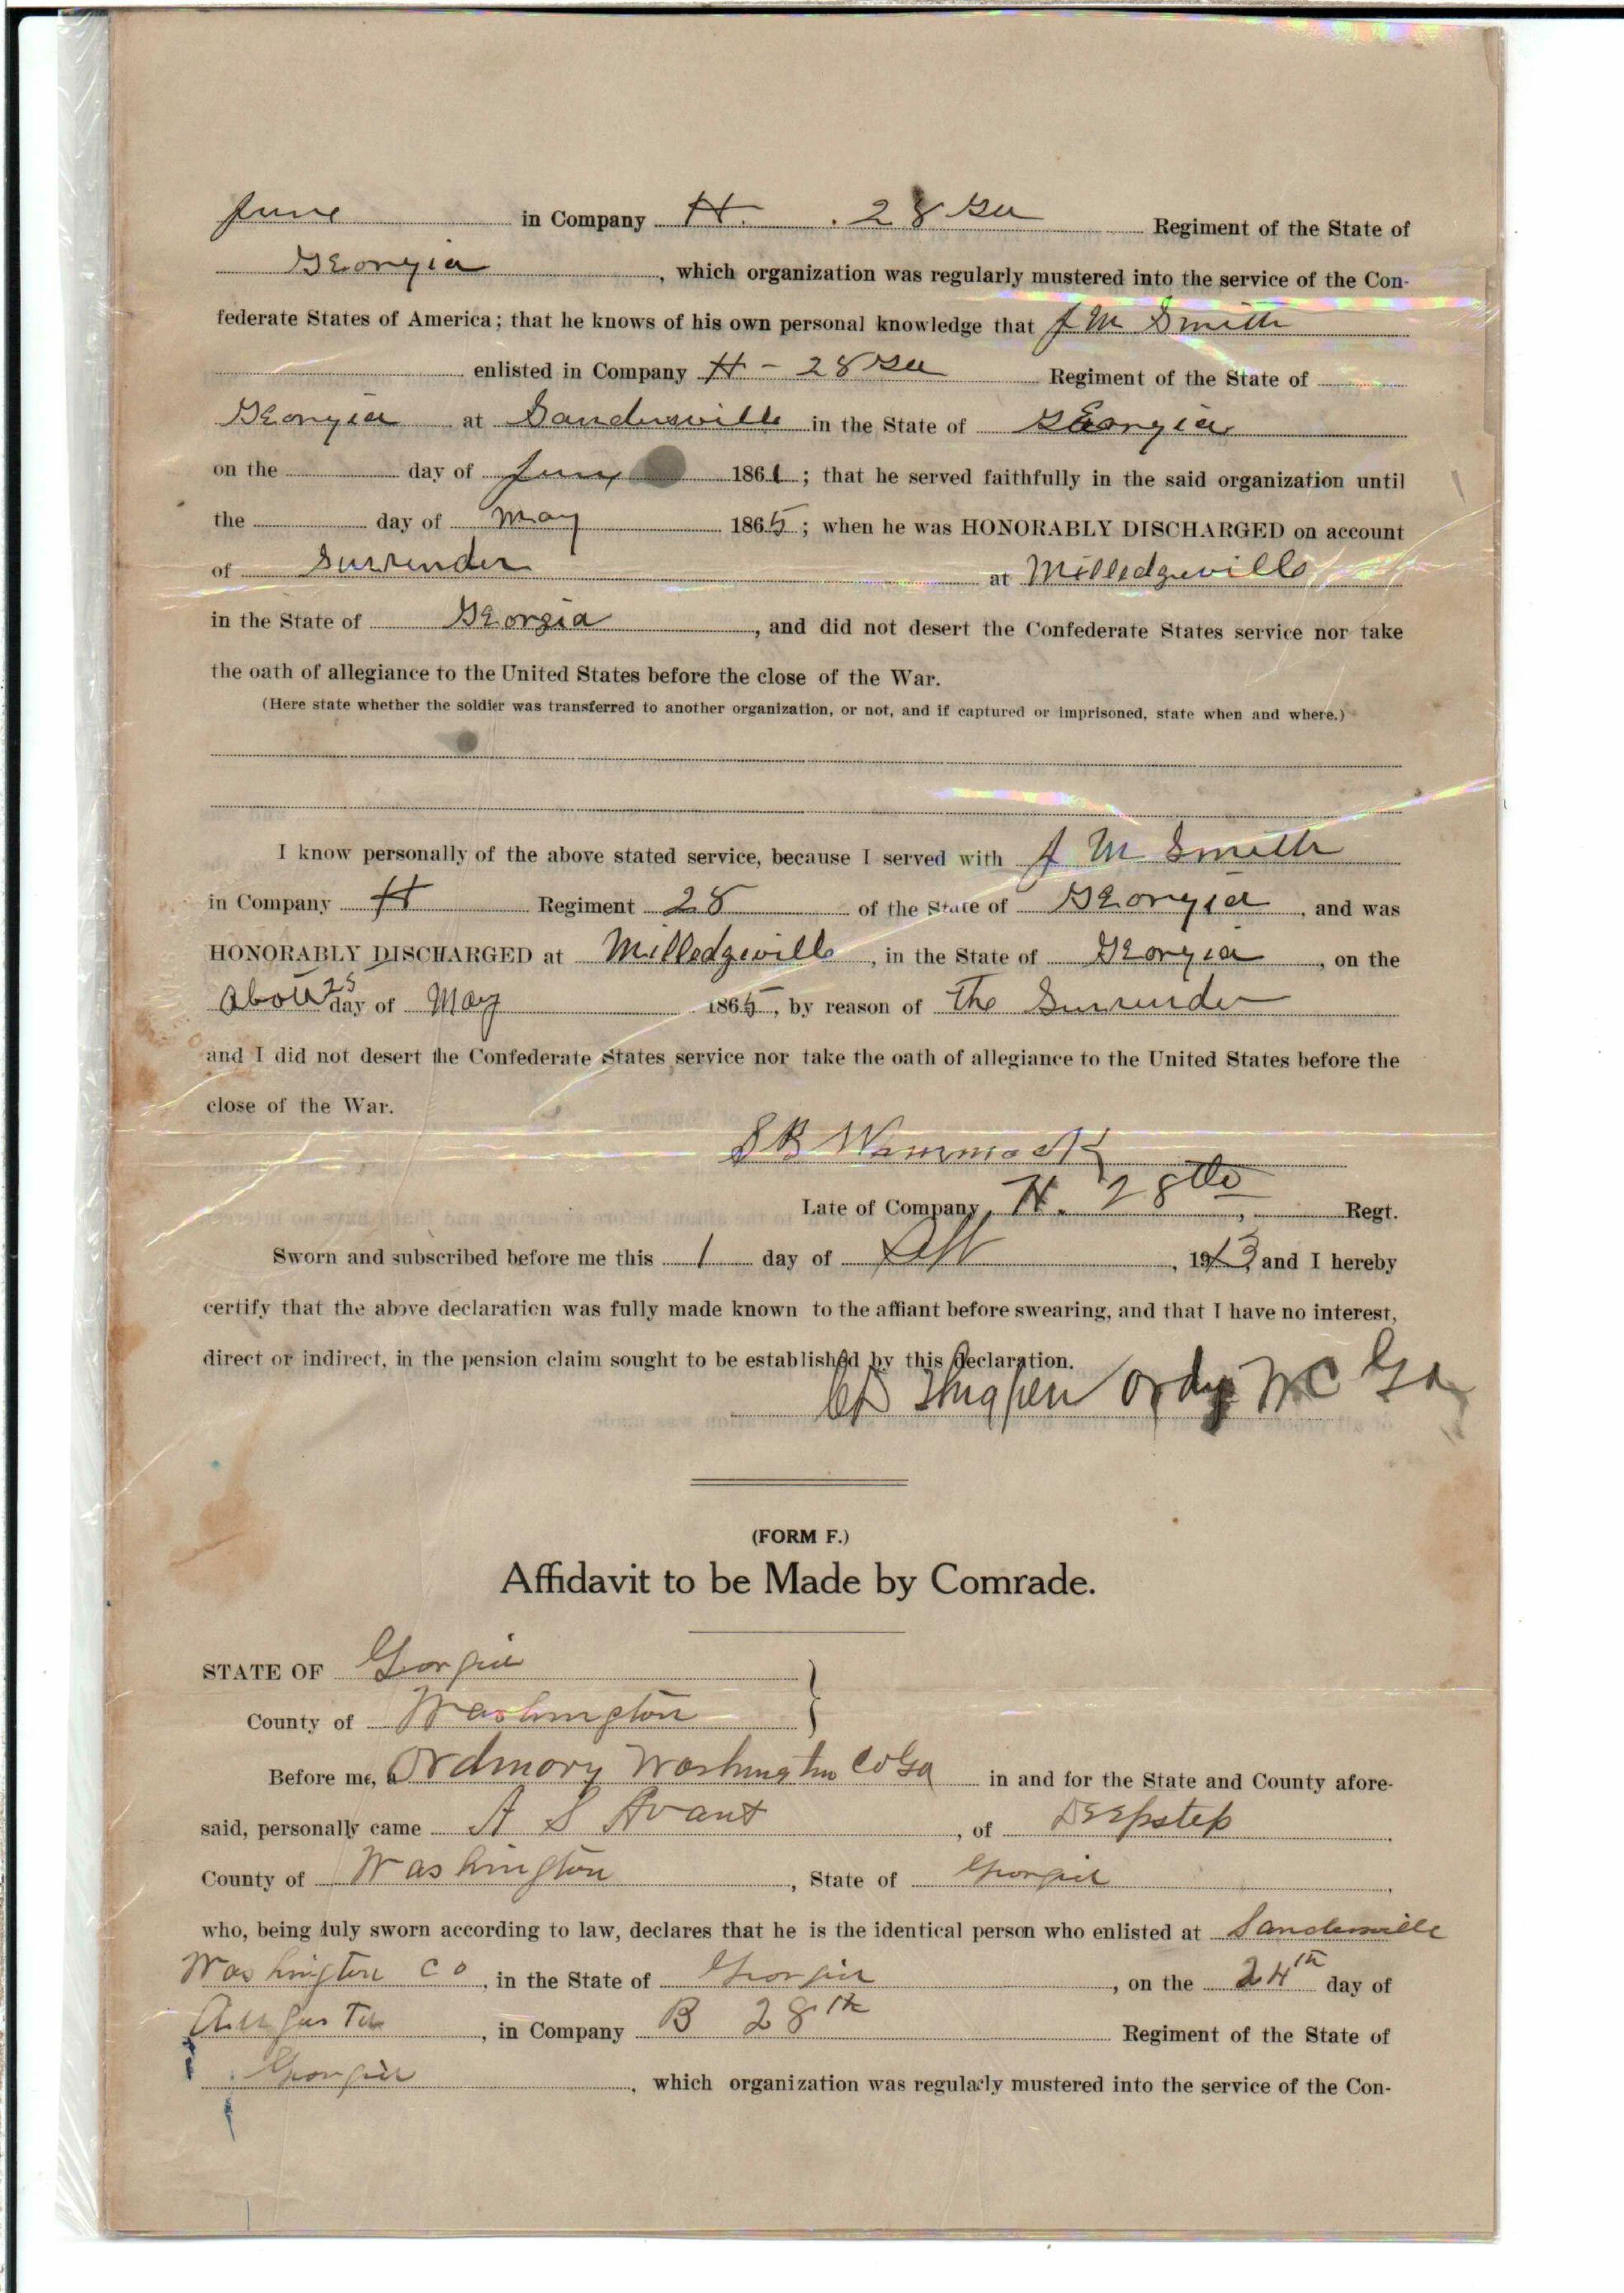 June in Company H. 28 Ga Regiment of the State of
Georgia, which organization was regularly mustered into the service of the Con-
federate States of America; that he knows of his own personal knowledge that J M Smith
enlisted in Company H - 28 Ga Regiment of the State of
Georgia at Sandersville in the State of Georgia
on the day of June 1861; that he served faithfully in the said organization until
the day of May 1865; when he was HONORABLY DISCHARGED on account
of Surrender at Milledgeville
in the State of Georgia, and did not desert the Confederate States service nor take
the oath of allegiance to the United States before the close of the War.
(Here state whether the soldier was transferred to another organization, or not, and if captured or imprisoned, state when and where.)
I know personally of the above stated service, because I served with J M Smith
in Company H Regiment 28 of the State of Georgia, and was
HONORABLY DISCHARGED at Milledgeville, in the State of Georgia, on the
About 25 day of May 1865, by reason of The Surrender
and I did not desert the Confederate States service nor take the oath of allegiance to the United States before the
close of the War.
S B Wammock
Late of Company H. 28th, Regt.
Sworn and subscribed before me this 1 day of Sept, 1913, and I hereby
certify that the above declaration was fully made known to the affiant before swearing, and that I have no interest,
direct or indirect, in the pension claim sought to be established by this declaration.
Thigpen Ordy W C Ga
(FORM F.)
Affidavit to be Made by Comrade.
STATE OF Georgia
County of Washington
Before me, a Ordinary Washington Co Ga in and for the State and County afore-
said, personally came A S Avant, of Deepstep
County of Washington, State of Georgia,
who, being duly sworn according to law, declares that he is the identical person who enlisted at Sandersville
Washington Co, in the State of Georgia, on the 24th day of
Augusta, in Company B 28th Regiment of the State of
Georgia, which organization was regularly mustered into the service of the Con-